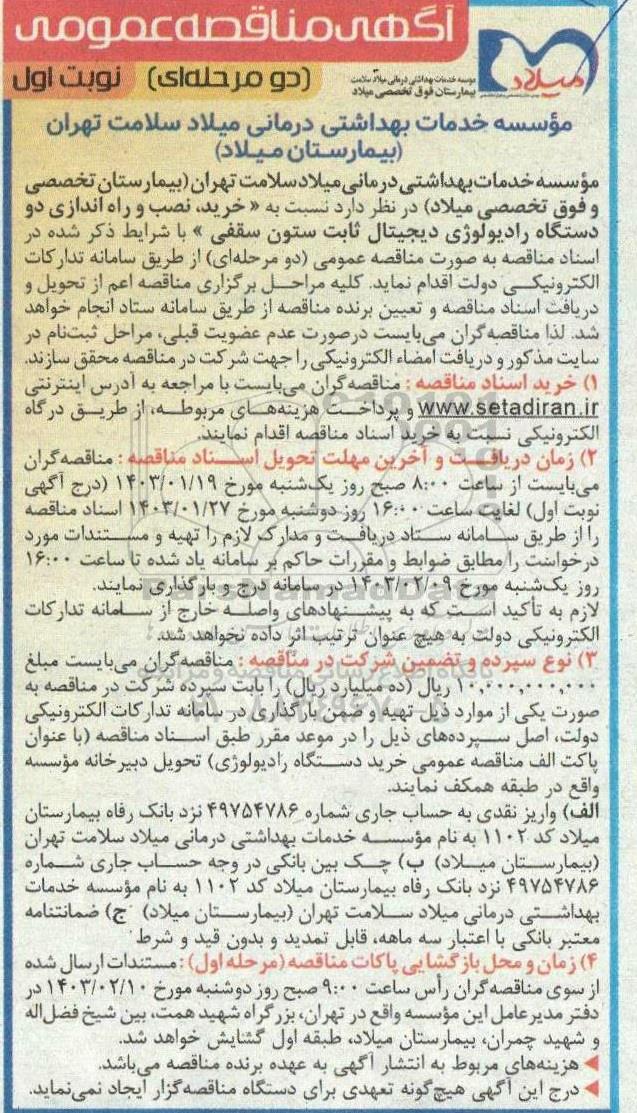 آگهی مناقصه عمومی
میلاد
موسسه خدمات بهداشتی درمانی میلاد سلامت
بیمارستان فوق تخصصی میلاد
(دو مرحله‌ای) نوبت اول
مؤسسه خدمات بهداشتی درمانی میلاد سلامت تهران
(بیمارستان میلاد)
مؤسسه خدمات بهداشتی درمانی میلاد سلامت تهران (بیمارستان تخصصی
و فوق تخصصی میلاد) در نظر دارد نسبت به « خرید، نصب و راه اندازی دو
دستگاه رادیولوژی دیجیتال ثابت ستون سقفی » با شرایط ذکر شده در
اسناد مناقصه به صورت مناقصه عمومی (دو مرحله‌ای) از طریق سامانه تدارکات
الکترونیکی دولت اقدام نماید. کلیه مراحل برگزاری مناقصه اعم از تحویل و
دریافت اسناد مناقصه و تعیین برنده مناقصه از طریق سامانه ستاد انجام خواهد
شد. لذا مناقصه‌گران می‌بایست درصورت عدم عضویت قبلی، مراحل ثبت‌نام در
سایت مذکور و دریافت امضاء الکترونیکی را جهت شرکت در مناقصه محقق سازند.
۱) خرید اسناد مناقصه : مناقصه‌گران می‌بایست با مراجعه به آدرس اینترنتی
www.setadiran.ir و پرداخت هزینه‌های مربوطه، از طریق درگاه
الکترونیکی نسبت به خرید اسناد مناقصه اقدام نمایند.
۲) زمان دریافت و آخرین مهلت تحویل اسناد مناقصه : مناقصه‌گران
می‌بایست از ساعت ۸:۰۰ صبح روز یک‌شنبه مورخ ۱۴۰۳/۰۱/۱۹ (درج آگهی
نوبت اول) لغایت ساعت ۱۶:۰۰ روز دوشنبه مورخ ۱۴۰۳/۰۱/۲۷ اسناد مناقصه
را از طریق سامانه ستاد دریافت و مدارک لازم را تهیه و مستندات مورد
درخواست را مطابق ضوابط و مقررات حاکم بر سامانه یاد شده تا ساعت ۱۶:۰۰
روز یک‌شنبه مورخ ۱۴۰۳/۰۲/۰۹ در سامانه درج و بارگذاری نمایند.
لازم به تأکید است که به پیشنهادهای واصله خارج از سامانه تدارکات
الکترونیکی دولت به هیچ عنوان ترتیب اثر داده نخواهد شد.
۳) نوع سپرده و تضمین شرکت در مناقصه : مناقصه‌گران می‌بایست مبلغ
۱۰,۰۰۰,۰۰۰,۰۰۰ ریال (ده میلیارد ریال) را بابت سپرده شرکت در مناقصه به
صورت یکی از موارد ذیل تهیه و ضمن بارگذاری در سامانه تدارکات الکترونیکی
دولت، اصل سپرده‌های ذیل را در موعد مقرر طبق اسناد مناقصه (با عنوان
پاکت الف مناقصه عمومی خرید دستگاه رادیولوژی) تحویل دبیرخانه مؤسسه
واقع در طبقه همکف نمایند.
الف) واریز نقدی به حساب جاری شماره ۴۹۷۵۴۷۸۶ نزد بانک رفاه بیمارستان
میلاد کد ۱۱۰۲ به نام مؤسسه خدمات بهداشتی درمانی میلاد سلامت تهران
(بیمارستان میلاد) ب) چک بین بانکی در وجه حساب جاری شماره
۴۹۷۵۴۷۸۶ نزد بانک رفاه بیمارستان میلاد کد ۱۱۰۲ به نام مؤسسه خدمات
بهداشتی درمانی میلاد سلامت تهران (بیمارستان میلاد) ج) ضمانتنامه
معتبر بانکی با اعتبار سه ماهه، قابل تمدید و بدون قید و شرط
۴) زمان و محل بازگشایی پاکات مناقصه (مرحله اول) : مستندات ارسال شده
از سوی مناقصه‌گران رأس ساعت ۹:۰۰ صبح روز دوشنبه مورخ ۱۴۰۳/۰۲/۱۰ در
دفتر مدیرعامل این مؤسسه واقع در تهران، بزرگراه شهید همت، بین شیخ فضل‌اله
و شهید چمران، بیمارستان میلاد، طبقه اول گشایش خواهد شد.
هزینه‌های مربوط به انتشار آگهی به عهده برنده مناقصه می‌باشد.
درج این آگهی هیچ‌گونه تعهدی برای دستگاه مناقصه‌گزار ایجاد نمی‌نماید.